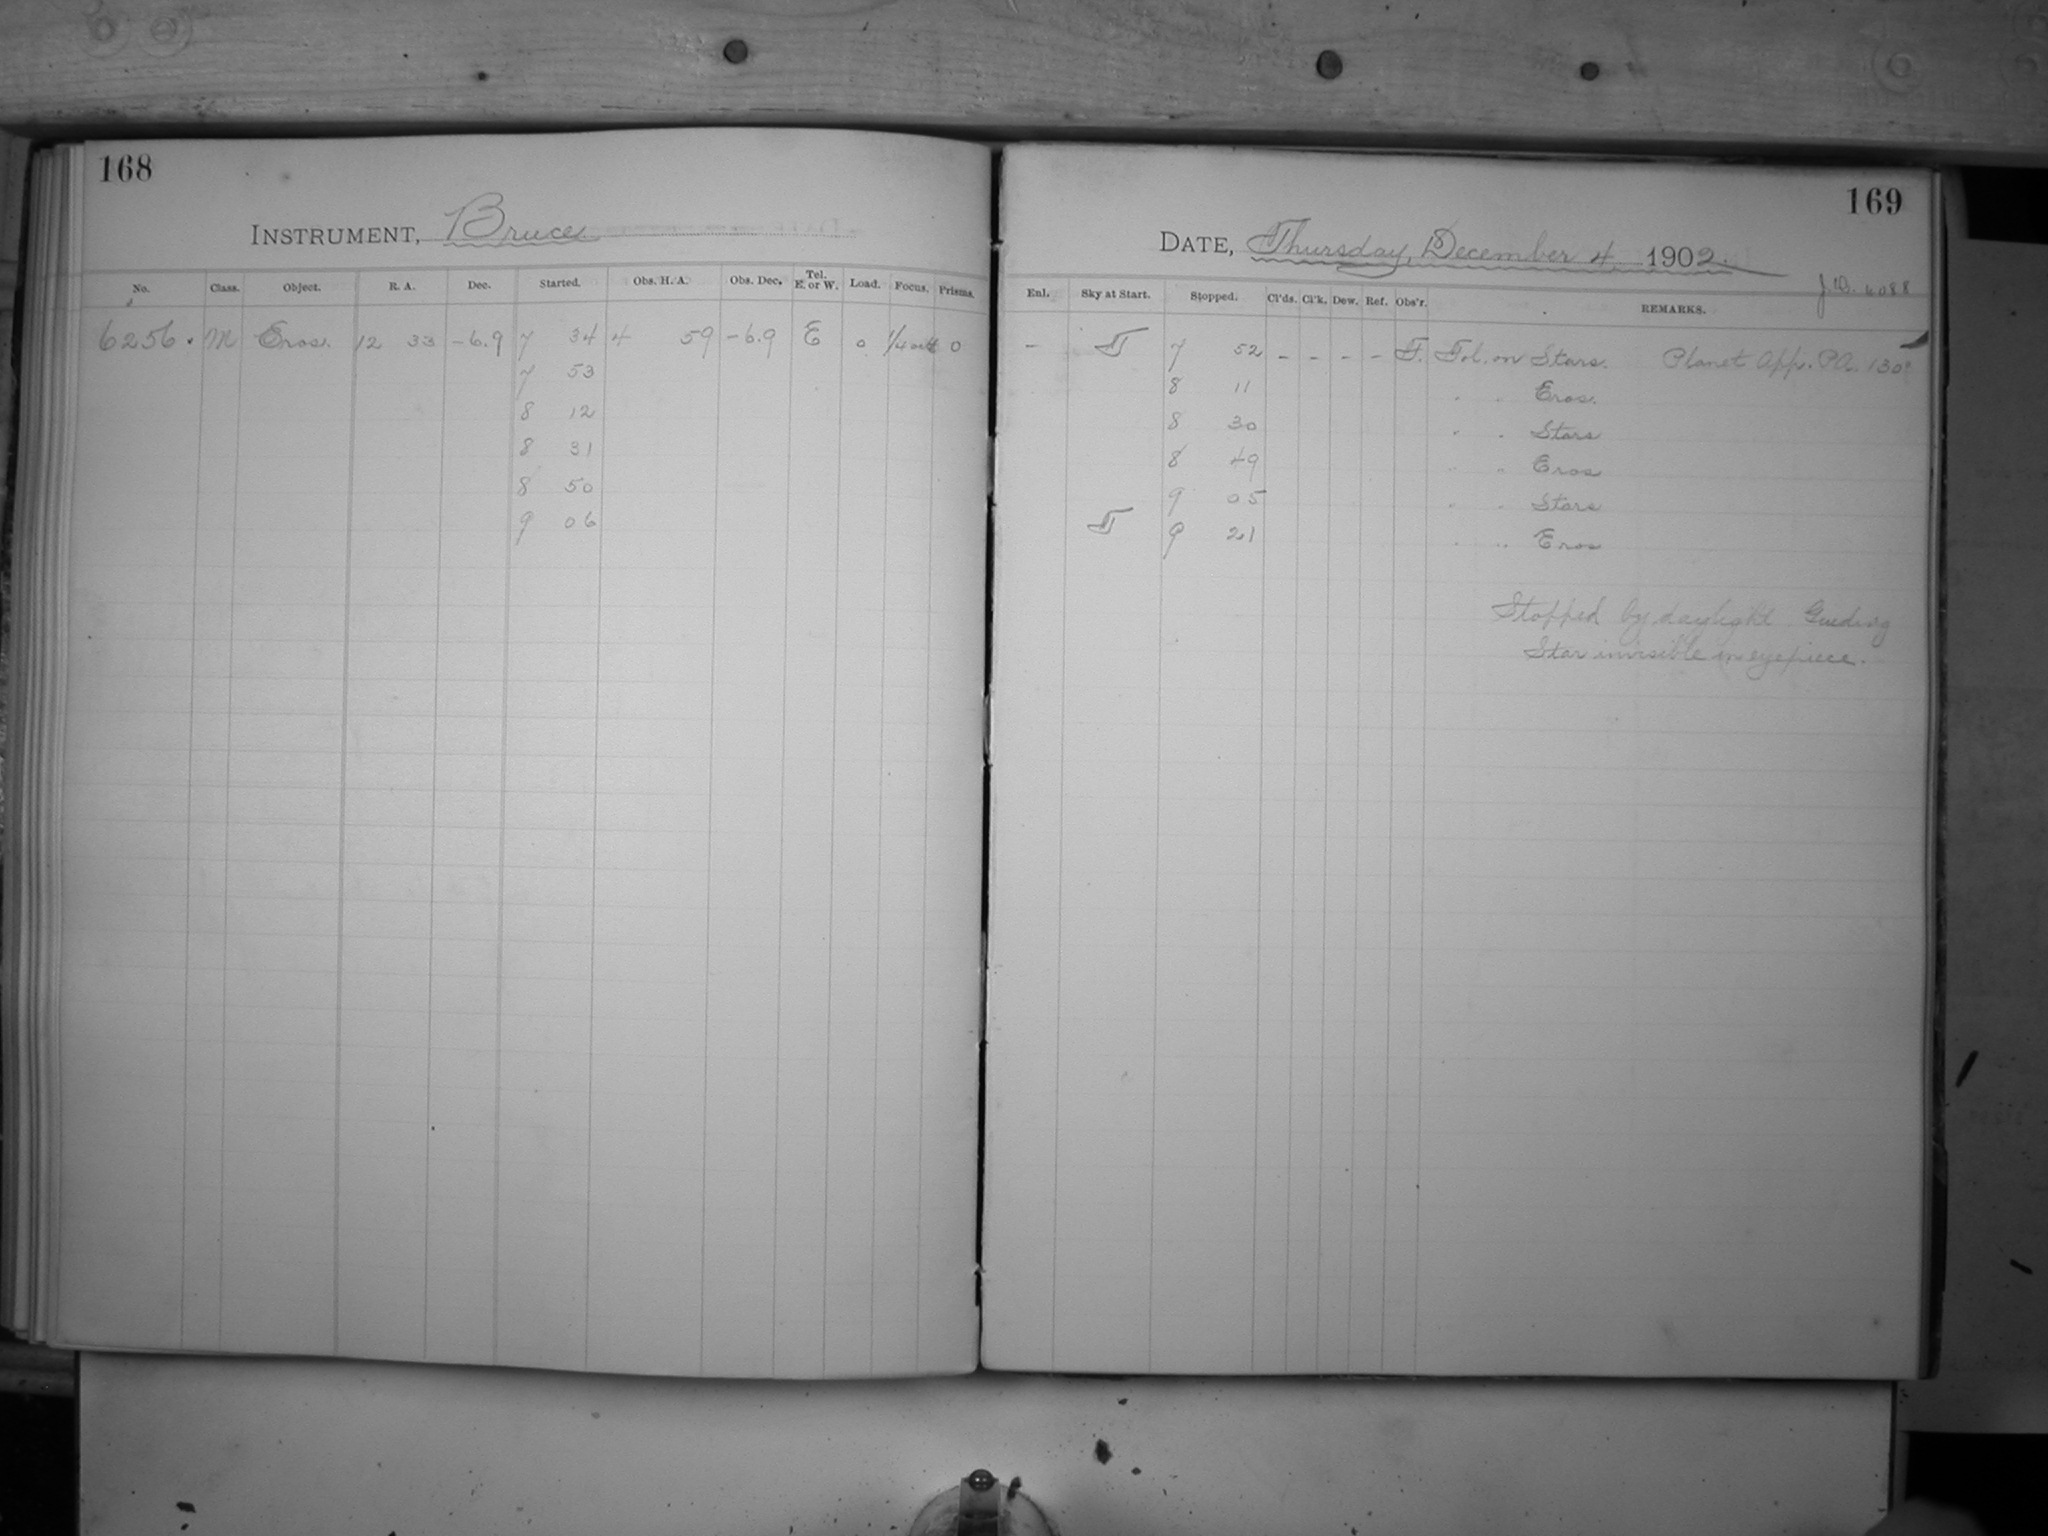 168
INSTRUMENT, Bruce
No. Class. Object. R. A. Dec. Started. Obs. H. A. Obs. Dec. Tel. E. or W. Load. Focus. Prisms.
6256. M Eros. 12 33 -6.9 7 34 4 59 -6.9 E 0 1/4 out 0
7 53
8 12
8 31
8 50
9 06
169
DATE, Thursday, December 4 1902.
J.D. 6088
Enl. Sky at Start. Stopped. Cl'ds. Cl'k. Dew. Ref. Obs'r. REMARKS.
- 7 52 - - - - F. Fol. on Stars. Planet App. PA. 130°
8 11 " " Eros.
8 30 " " Stars
8 49 " " Eros
9 05 " " Stars
9 21 " " Eros
Stopped by daylight. Guiding
Star invisible in eyepiece.